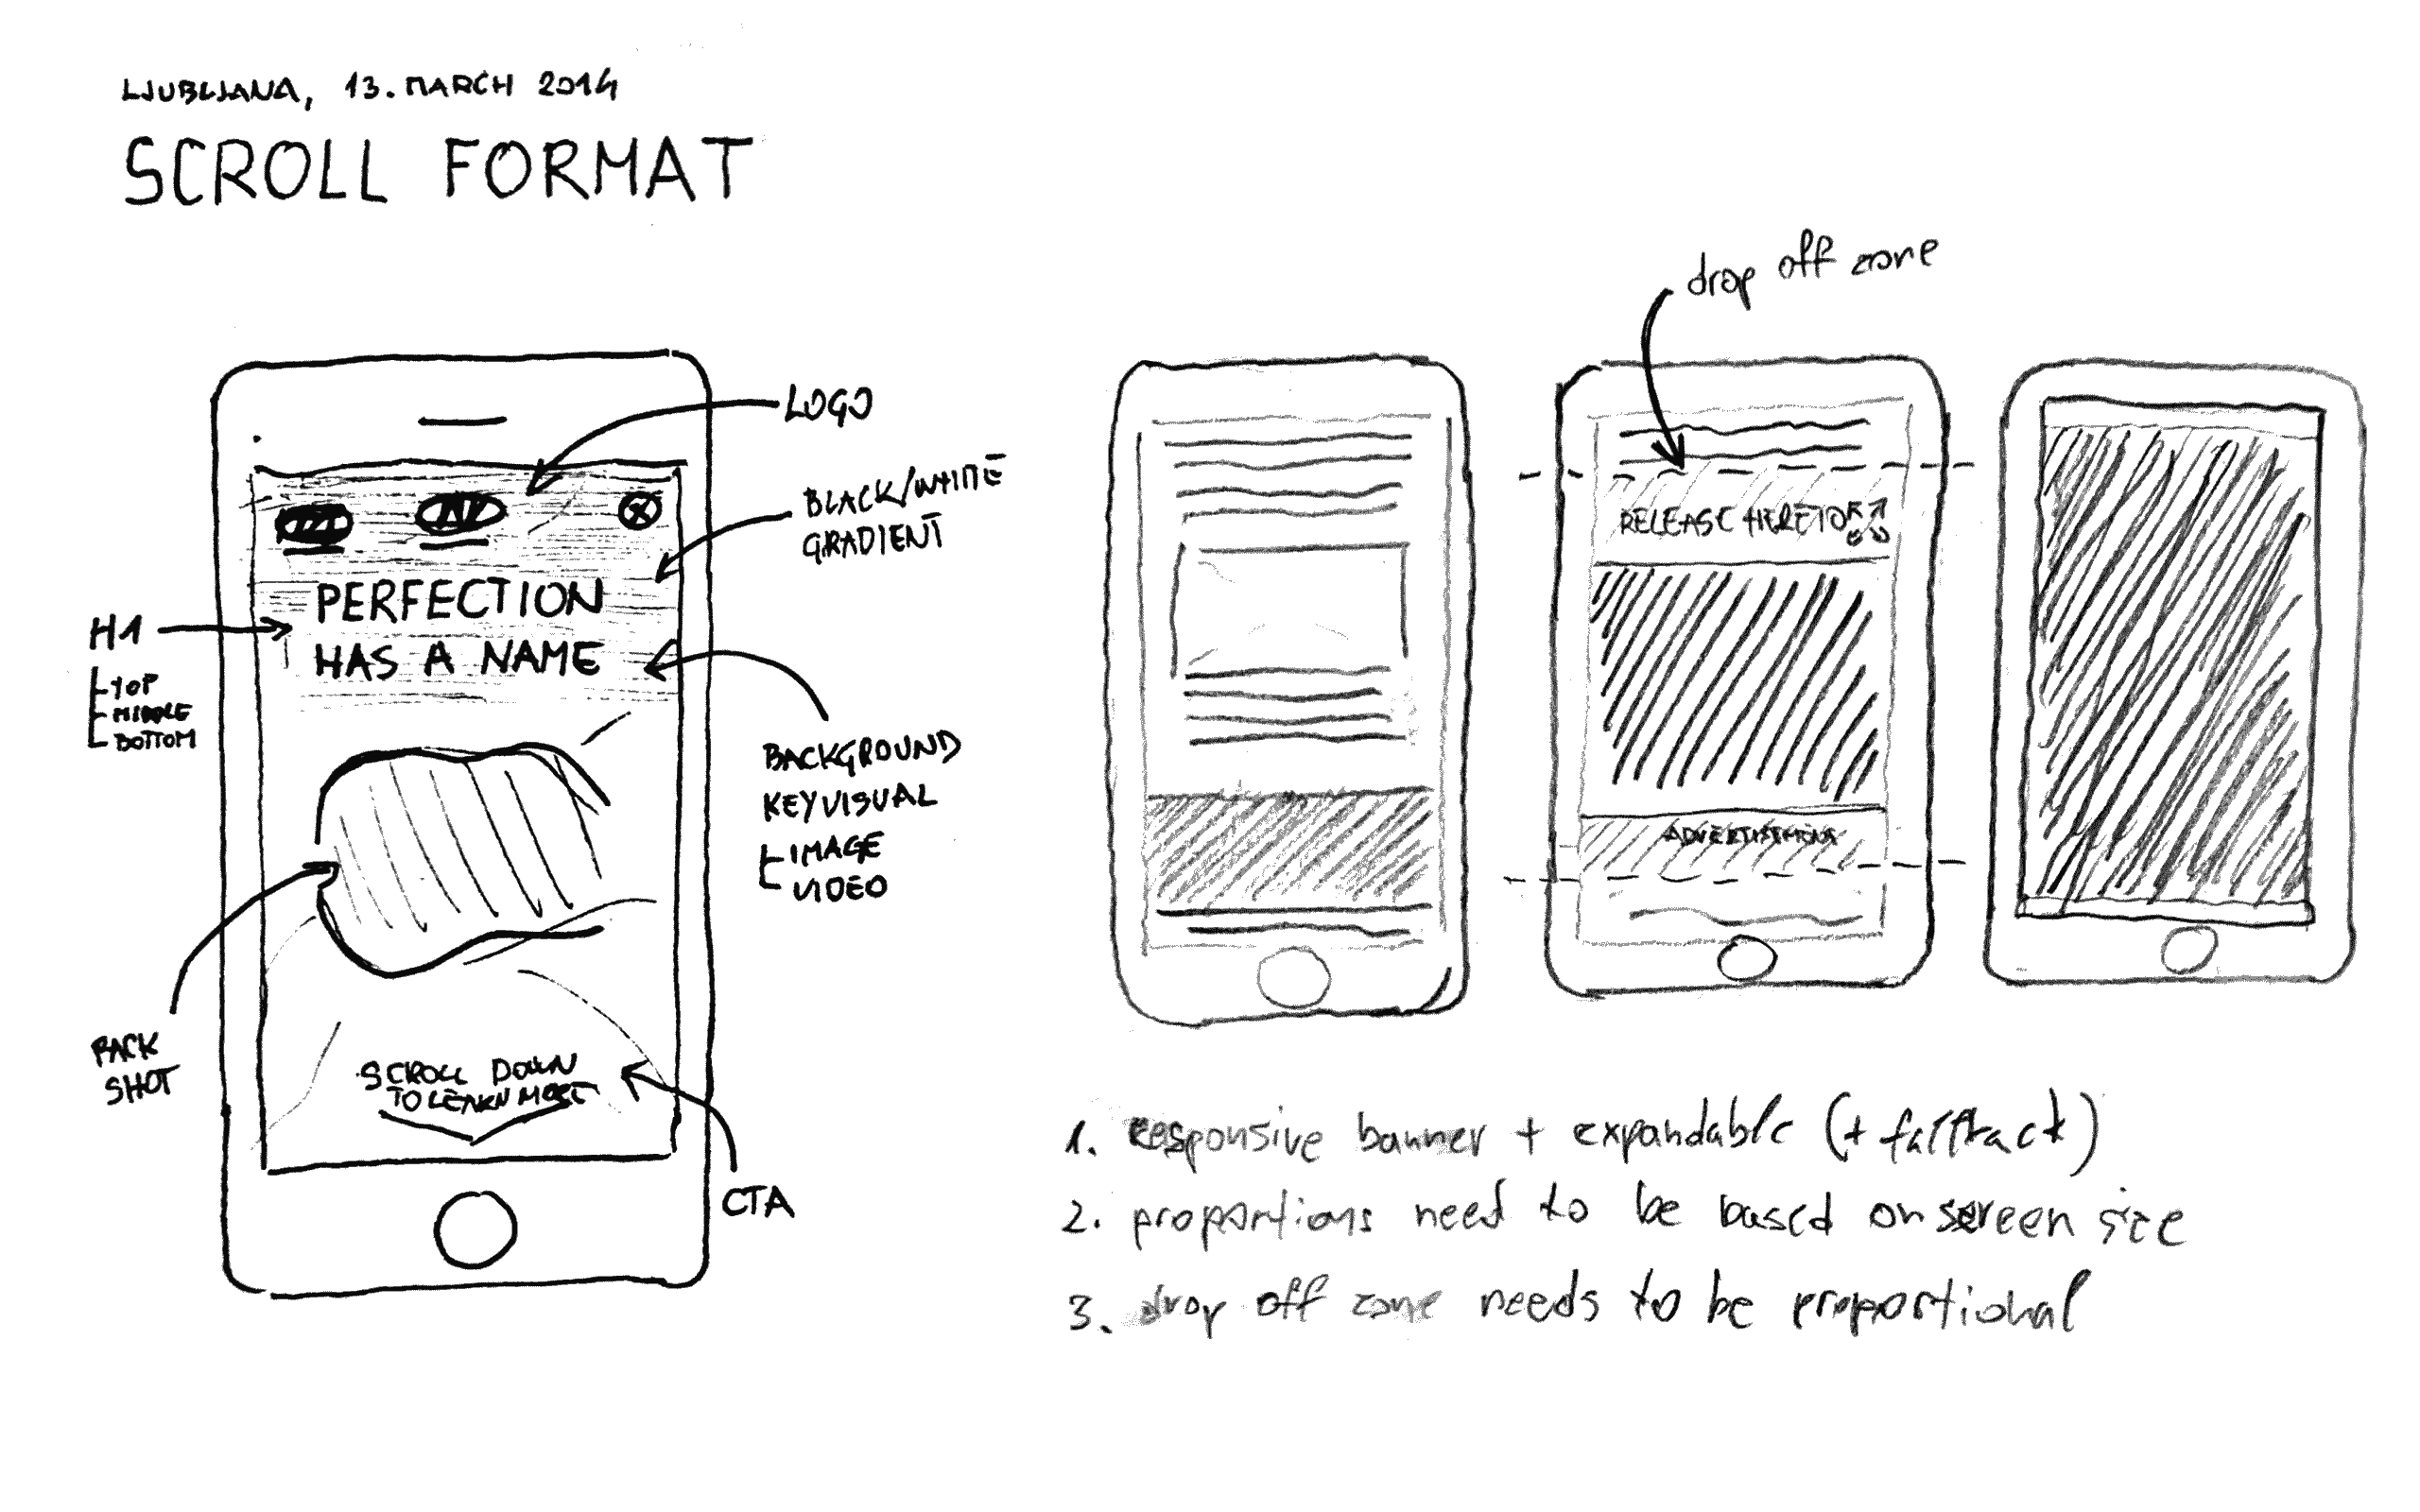 LJUBLJANA, 13. MARCH 2014
SCROLL FORMAT
LOGO
BLACK/WHITE
GRADIENT
PERFECTION
HAS A NAME
H1
TOP
MIDDLE
BOTTOM
BACKGROUND
KEYVISUAL
IMAGE
VIDEO
PACK
SHOT
SCROLL DOWN
TO LEARN MORE
CTA
drop off zone
RELEASE HERE TO
ADVERTISEMENT
1. responsive banner + expandable (+ fallback)
2. proportions need to be based on screen size
3. drop off zone needs to be proportional